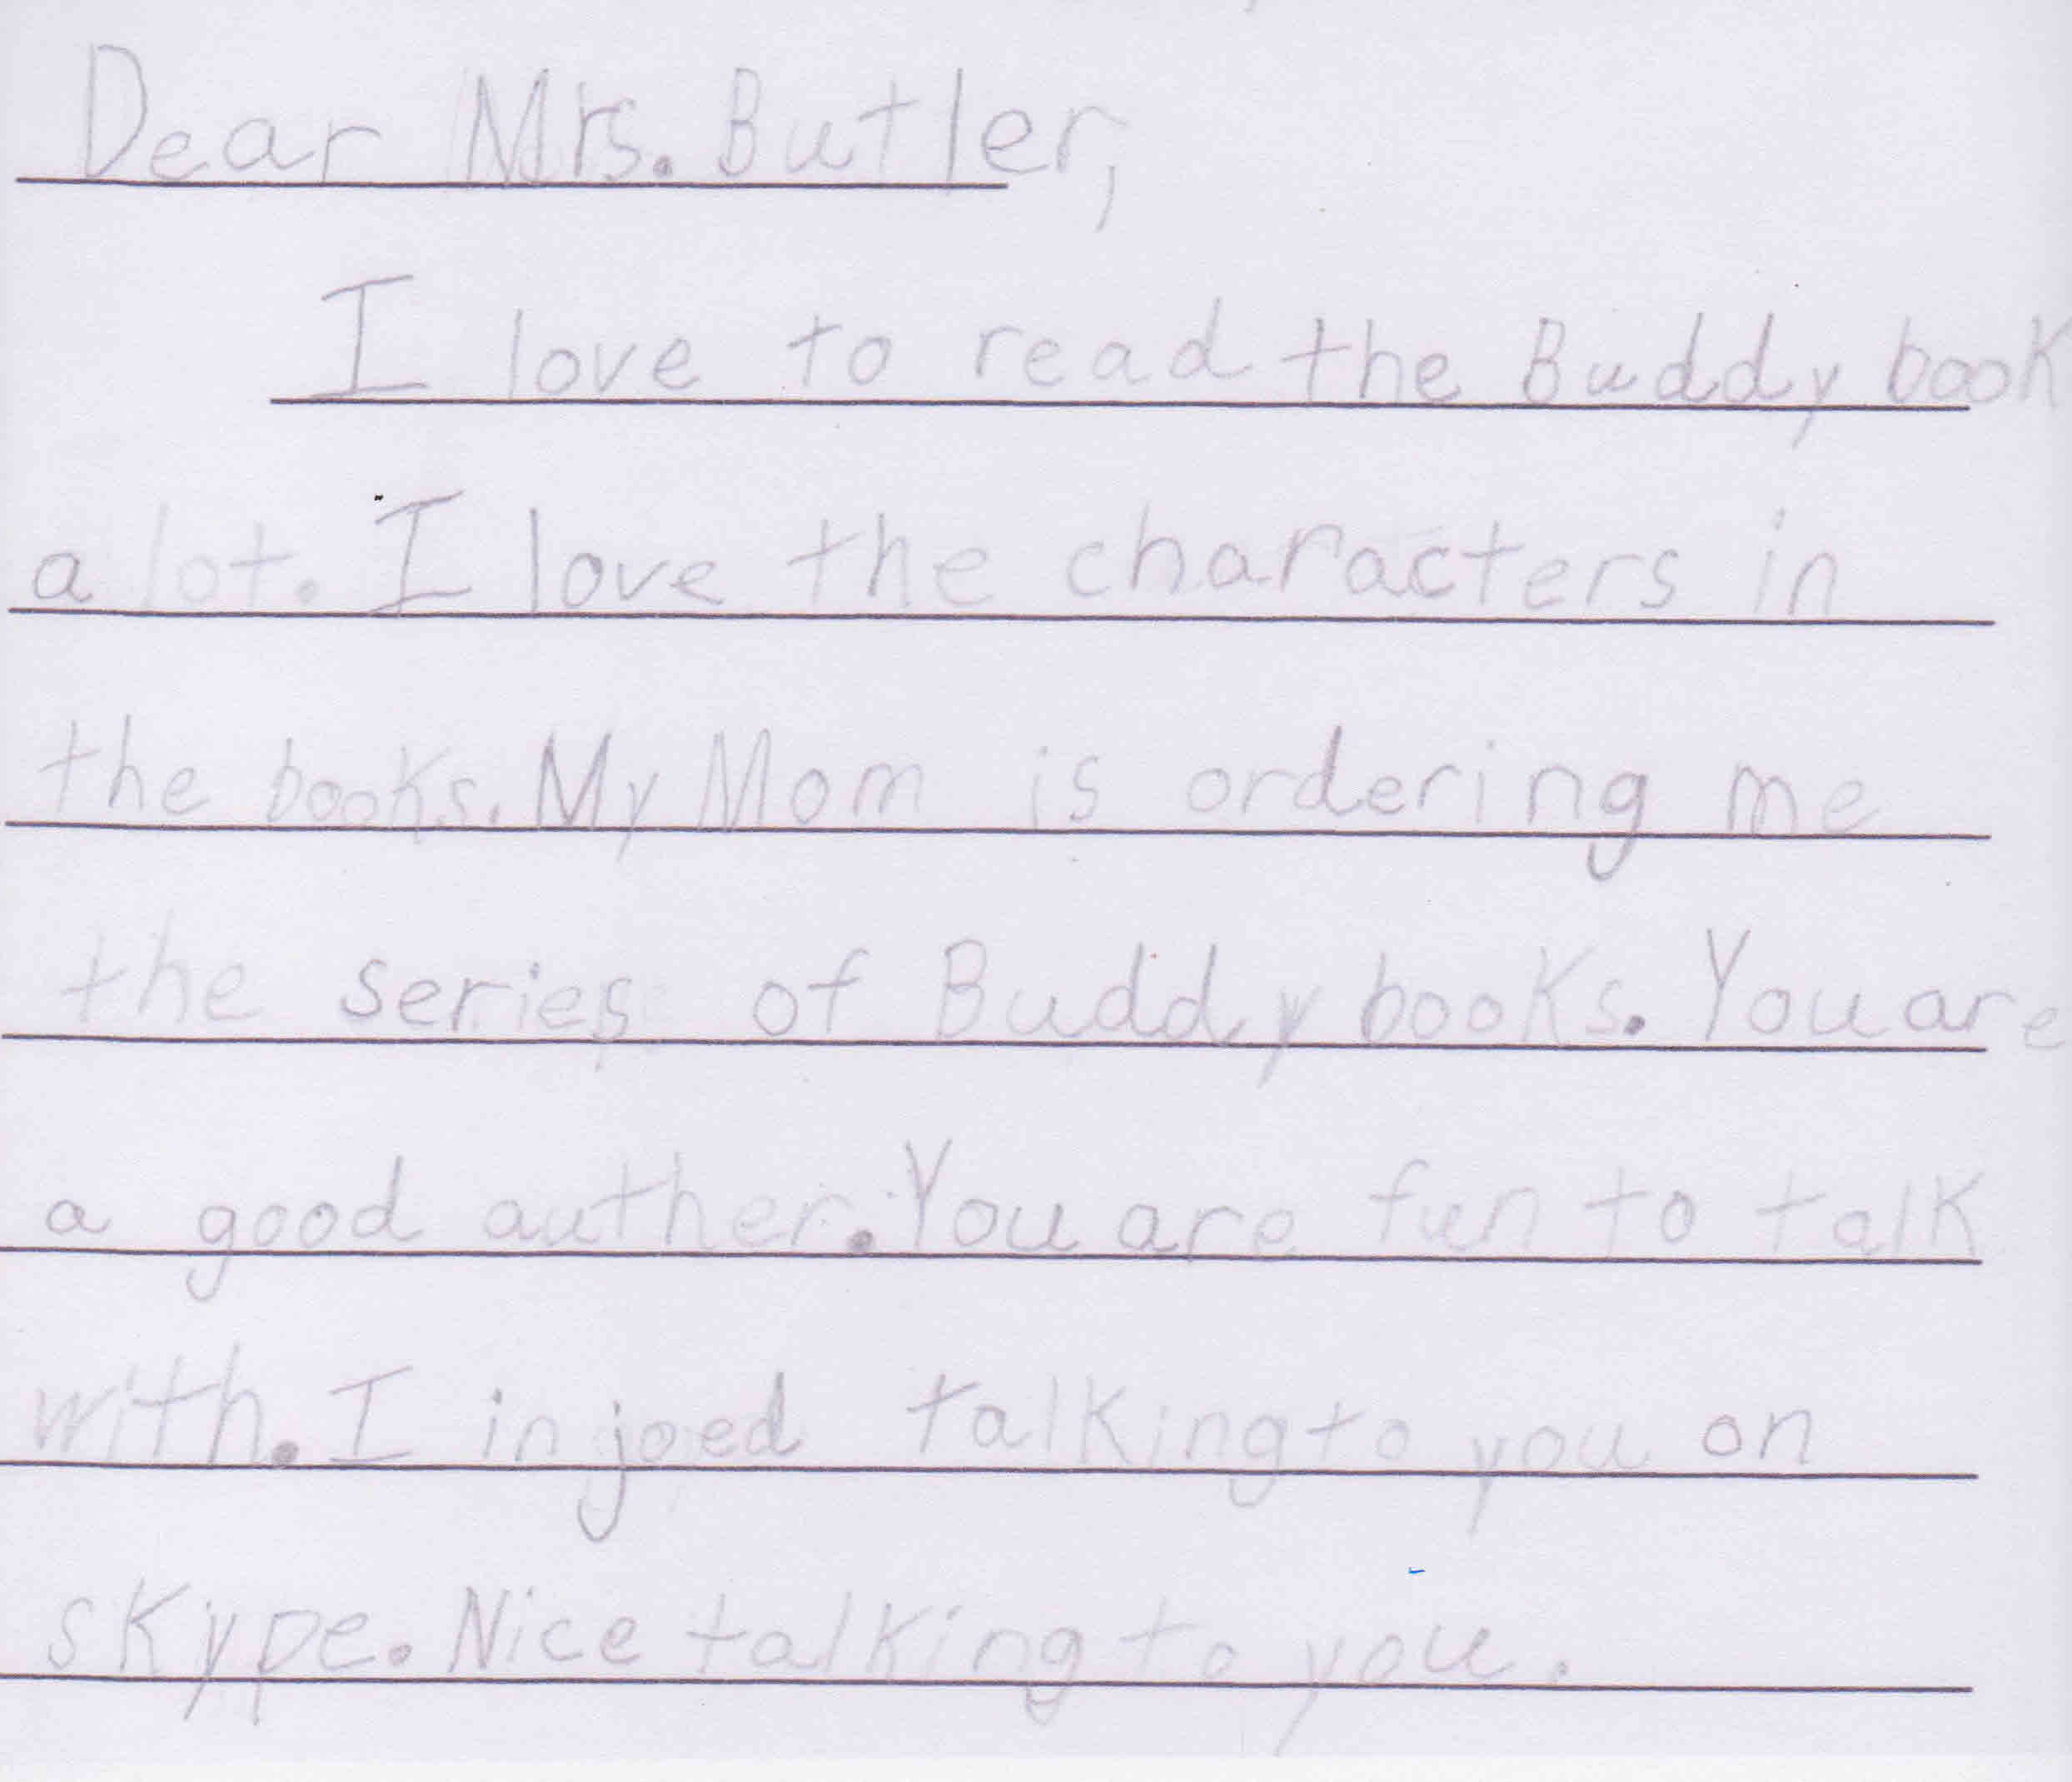 Dear Mrs. Butler,
I love to read the Buddy book
a lot. I love the characters in
the books. My Mom is ordering me
the series of Buddy books. You are
a good auther. You are fun to talk
with. I injoed talking to you on
skype. Nice talking to you.